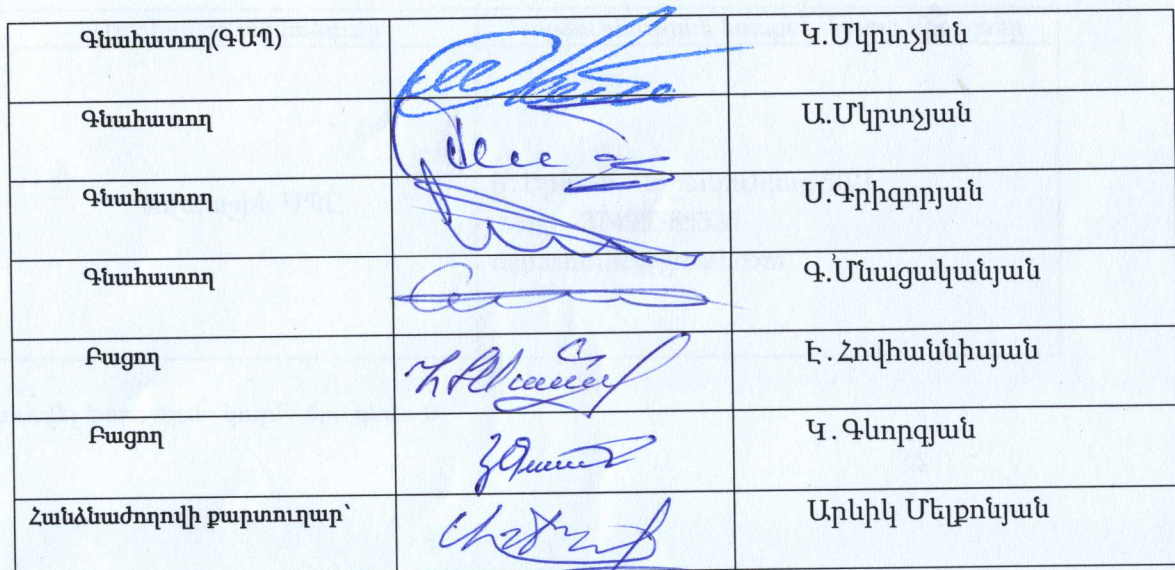 Գնահատող(ԳՄՊ) Կ.Մկրտչյան
Գնահատող Ա.Մկրտչյան
Գնահատող Ս.Գրիգորյան
Գնահատող Գ.Մնացականյան
Բացող Է. Հովհաննիսյան
Բացող Կ.Գևորգյան
Հանձնաժողովի քարտուղար՝ Արևիկ Մելքոնյան